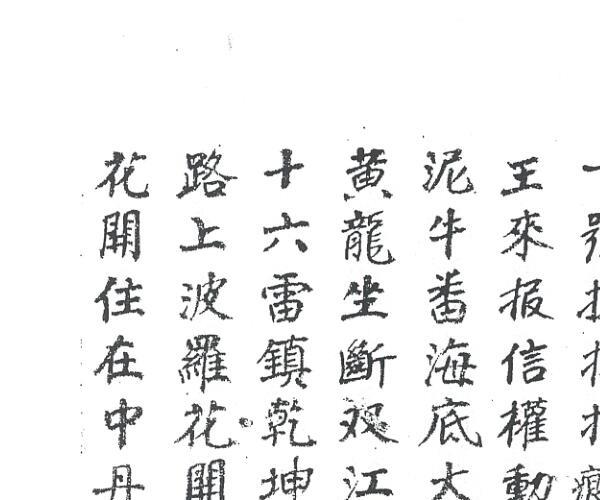 王來报信權動
泥牛畨海底大
黄龍坐斷双江
十六雷鎮乾坤
路上波羅花開
花開住在中丹